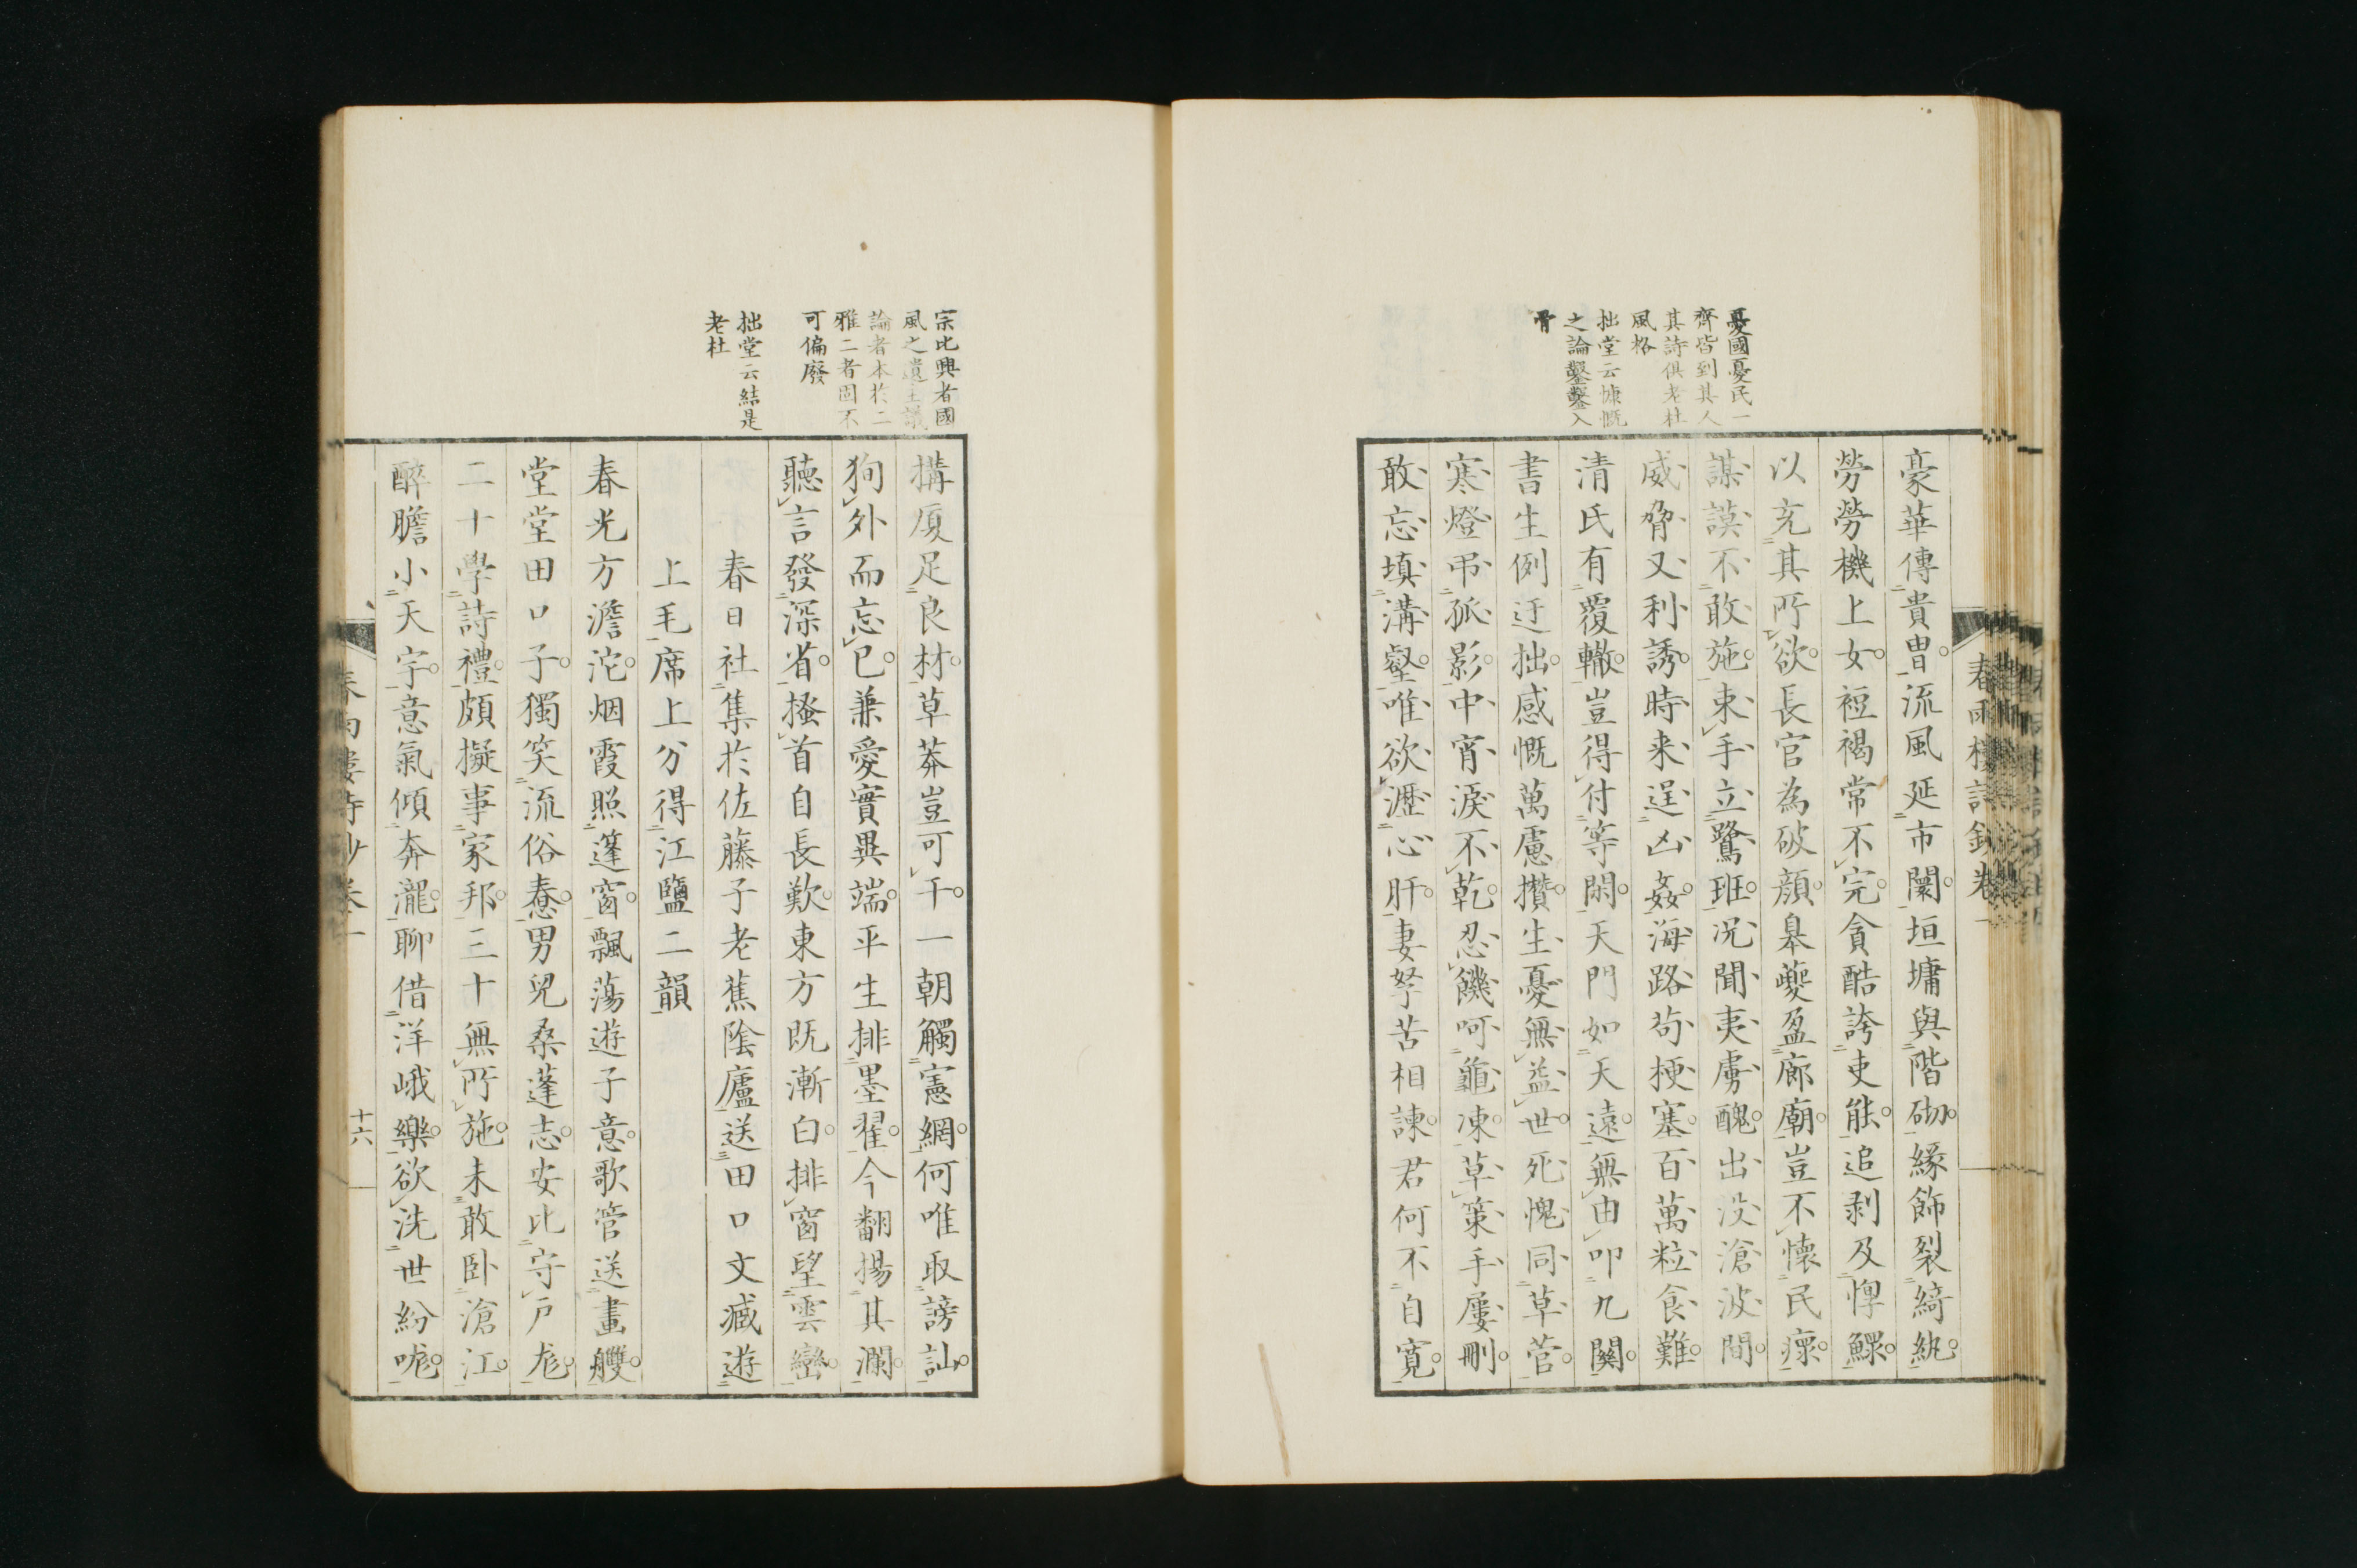 憂國憂民一
齊皆到其人
其詩俱老杜
風格
拙堂云慷慨
之論鑿鑿入
骨
春雨樓詩鈔卷一
豪華傳貴冑流風延市闤垣墉與階砌緣飾裂綺紈
勞勞機上女裋褐常不完貪酷誇吏能追剥及惸鰥
以充其所欲長官為破顔皋夔盈廊廟豈不懷民瘝
謀謨不敢施束手立鷺班況聞夷虜醜出没滄波間
威脅又利誘時来逞凶姦海路苟梗塞百萬粒食難
清氏有覆轍豈得付等閑天門如天遠無由叩九關
書生例迂拙感慨萬慮攢生憂無益世死愧同草菅
寒燈弔孤影中宵淚不乾忍饑呵龜凍草策手屢刪
敢忘填溝壑唯欲瀝心肝妻孥苦相諫君何不自寛
宗比興者國
風之遺主議
論者本於二
雅二者固不
可偏廢
拙堂云結是
老杜
搆厦足良材草莽豈可干一朝觸憲網何唯取謗訕
狥外而忘己兼愛實異端平生排墨翟今翻揚其瀾
聽言發深省搔首自長歎東方既漸白排窗望雲巒
春日社集於佐藤子老蕉陰廬送田口文臧遊
上毛席上分得江鹽二韻
春光方澹沱烟霞照篷窗飄蕩遊子意歌管送畫艭
堂堂田口子獨笑流俗惷男兒桑蓬志安比守戸尨
二十學詩禮頗擬事家邦三十無所施未敢卧滄江
醉膽小天宇意氣傾奔瀧聊借洋峨樂欲洗世紛哤
春雨樓詩鈔卷一
十六